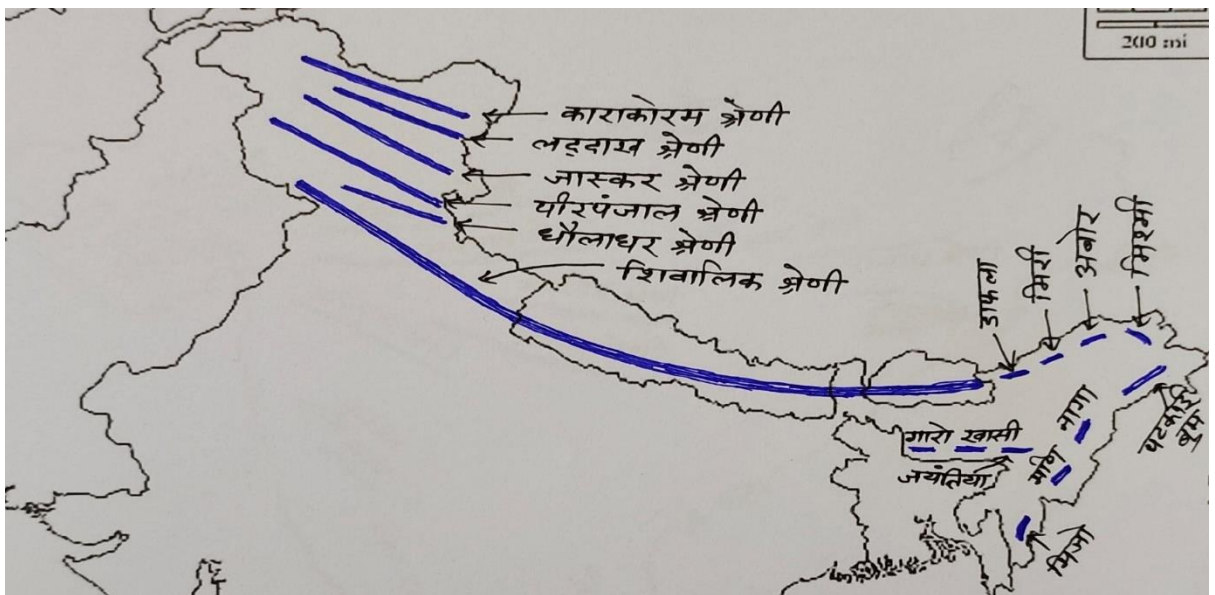 200 mi
काराकोरम श्रेणी
लद्दाख श्रेणी
जास्कर श्रेणी
पीरपंजाल श्रेणी
धौलाधर श्रेणी
शिवालिक श्रेणी
डाफला
मिरी
अबोर
मिश्मी
पटकोई
बुम
नागा
गारो खासी
जयंतिया
मणि
मिजो